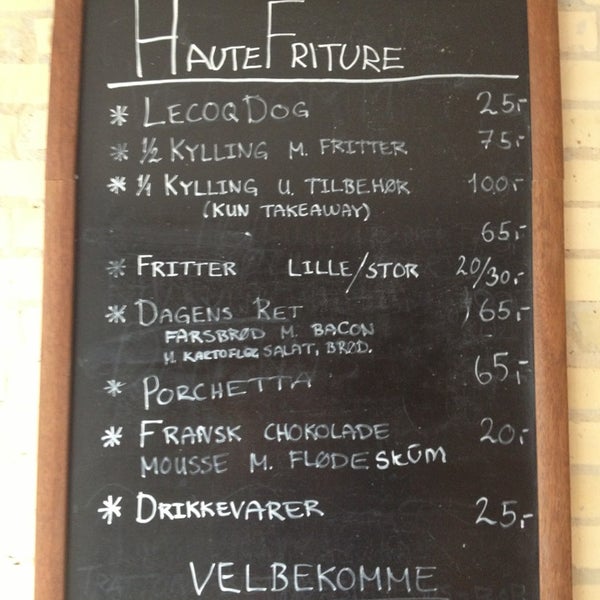 HAUTE FRITURE
* LECOQ DOG 25,-
* 1/2 KYLLING M. FRITTER 75,-
* 1/1 KYLLING U. TILBEHØR 100,-
(KUN TAKEAWAY)
65,-
* FRITTER LILLE/STOR 20/30,-
* DAGENS RET 65,-
FARSBRØD M. BACON
M. KARTOFLER SALAT, BRØD.
* PORCHETTA 65,-
* FRANSK CHOKOLADE 20,-
MOUSSE M. FLØDESKUM
* DRIKKEVARER 25,-
VELBEKOMME